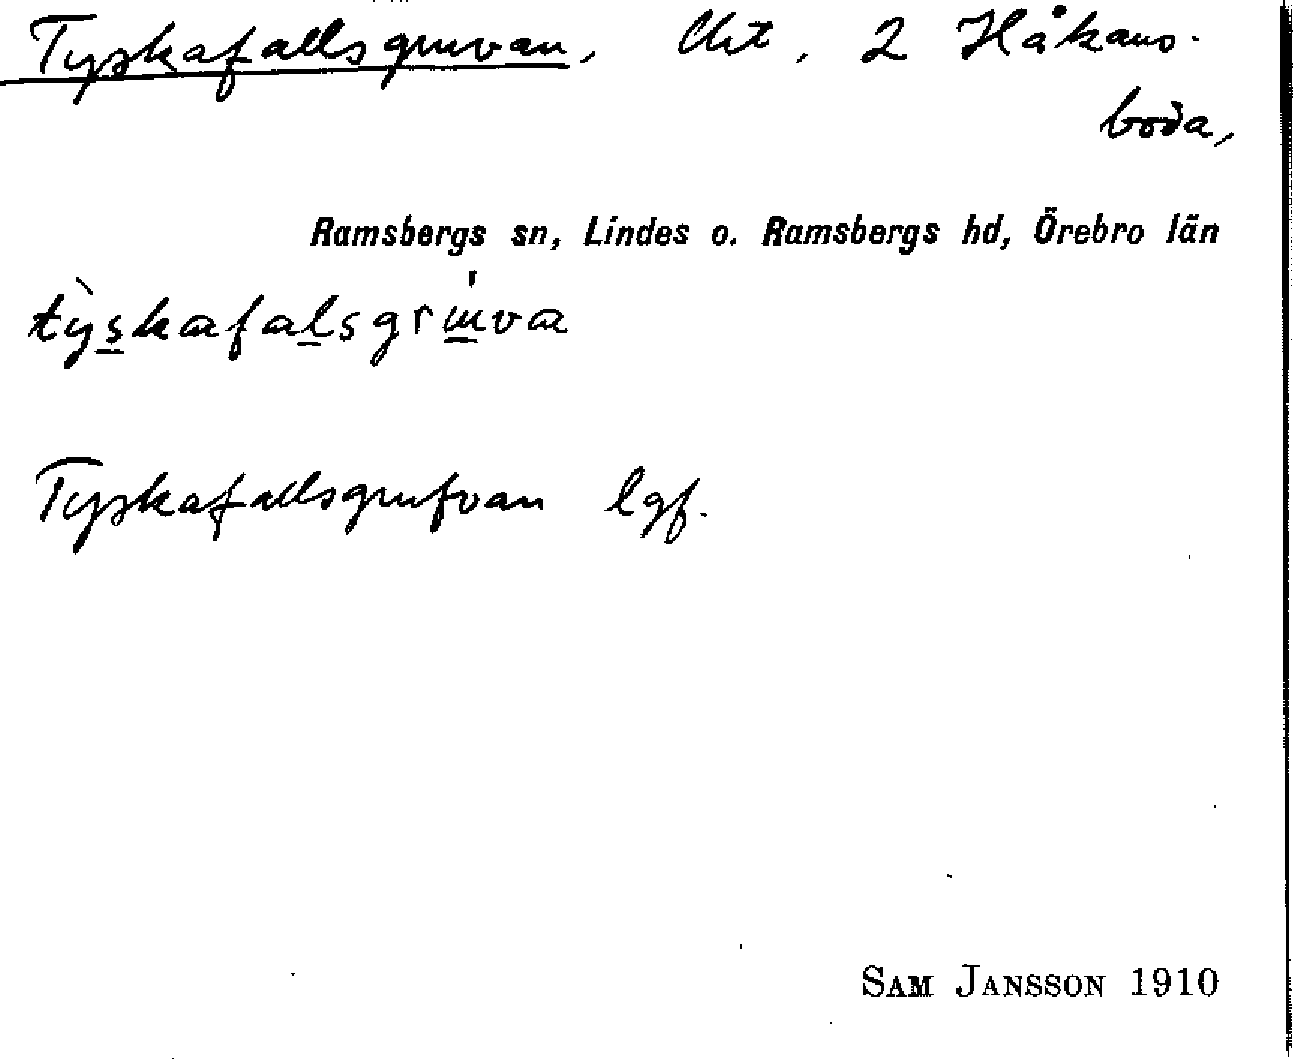 Tyskafallsgruvan, Urt, 2 Håkans-
boda,
Ramsbergs sn, Lindes o. Ramsbergs hd, Örebro län
tỳskafalsgrɯva
Tyskafallsgrufvan lgf.
SAM JANSSON 1910